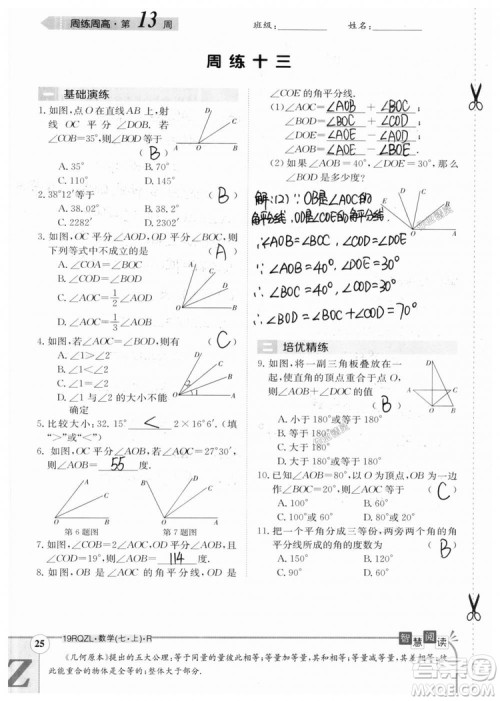 周练周高·第 13 周
班级：
姓名：
周练十三
一 基础演练
1. 如图，点O在直线AB上，射
线OC平分∠DOB，若
∠COB=35°，则∠DOB等于
( B )
A. 35° B. 70°
C. 110° D. 145°
2. 38°12′等于 ( B )
A. 38.02° B. 38.2°
C. 38.12° D. 38.22°
3. 如图，OC平分∠AOB，OD平分∠AOC，则
下列等式中不成立的是 ( A )
A. ∠COA=∠BOC
B. ∠COD=∠AOD
C. ∠AOC=1/2∠AOD
D. ∠AOC=1/2∠AOB
4. 如图，若∠AOC=∠BOD，则有 ( C )
A. ∠1>∠2
B. ∠1<∠2
C. ∠1=∠2
D. ∠1与∠2的大小不能
确定
5. 比较大小：32.15° < 2×16°6′. (填
“>”或“<”)
∠BOC=27°30′，
则∠AOB= 55 度.
第6题图 第7题图
7. 如图，∠COB=2∠AOC，OD平分∠AOB，且
∠COD=19°，则∠AOB= 114 度.
8. 如图，OB是∠AOC的角平分线，OD是
∠COE的角平分线.
(1) ∠AOC=∠AOB+∠BOC
=∠AOD-∠COD
(2) 如果∠AOB=40°，∠DOE=30°，那么
∠BOD是多少度？
解：(2)∵OB是∠AOC的
角平分线
∴∠AOB=∠BOC，∠COD=∠DOE
∵∠AOB=40°，∠DOE=30°
∴∠BOC=40°，∠COD=30°
∴∠BOD=∠BOC+∠COD=70°
二 培优精练
9. 如图，将一副三角板叠放在一
起，使直角顶点重合于点O，则
∠AOB+∠DOC的值 ( B )
A. 小于180°或等于180°
B. 等于180°
C. 大于180°
D. 大于180°或等于180°
10. 已知∠AOB=60°，以O为顶点，OB为一边
作∠BOC=40°，则∠AOC等于 ( C )
A. 100° B. 20°
C. 100°或20° D. 60°或40°
11. 把一个平角分成三等份，两旁两个角的角
平分线所成的角的度数为 ( B )
A. 60° B. 120° C. 30° D. 90°
25
19RQZL·数学(七·上)·R
智慧阅读
《几何原本》提出的五大公理：等于同量的量彼此相等；等量加等量，其和相等；等量减等量，其差相等；彼
此能重合的物体是全等的；整体大于部分.